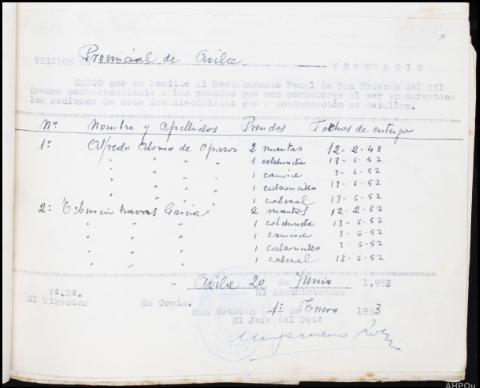 PRISION Provincial de Avila VESTUARIO
CARGO que se remite al Destacamento Penal de San Esteban del Sil
Orense correspondiente a las prendas que son portadores al ser transferidos
los reclusos de este Establecimiento que a continuación se detallan.
Nº Nombre y Apellidos Prendas Fechas de entrega
1º Alfredo de 2 mantas 12-2-43
" " " " 1 colchoneta 13-6-52
" " " " 1 camisa 3-6-52
" " " " 1 calzoncillo 13-6-52
" " " " 1 13-6-52
2: Tiburcio Navas Garcia 2 mantas 12-2-52
" " " 1 colchoneta 13-6-52
" " " 1 camisa 3-6-52
" " " 1 calzoncillo 3-6-52
" " " 1 13-6-52
Avila 20 de Junio 1,952
Vº.Bº. El Administrador
El Director Es Copia.
San Esteban 1º Enero 1953
El Jefe del Detº
AHPOu